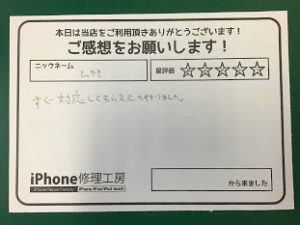 本日は当店をご利用頂きありがとうございます！
ご感想をお願いします！
ニックネーム
星評価 ☆☆☆☆☆
すぐ対応してもらえてたすかりました。
iPhone修理工房
iPhone Repair Factory
iPhone/iPad/iPod touch
から来ました